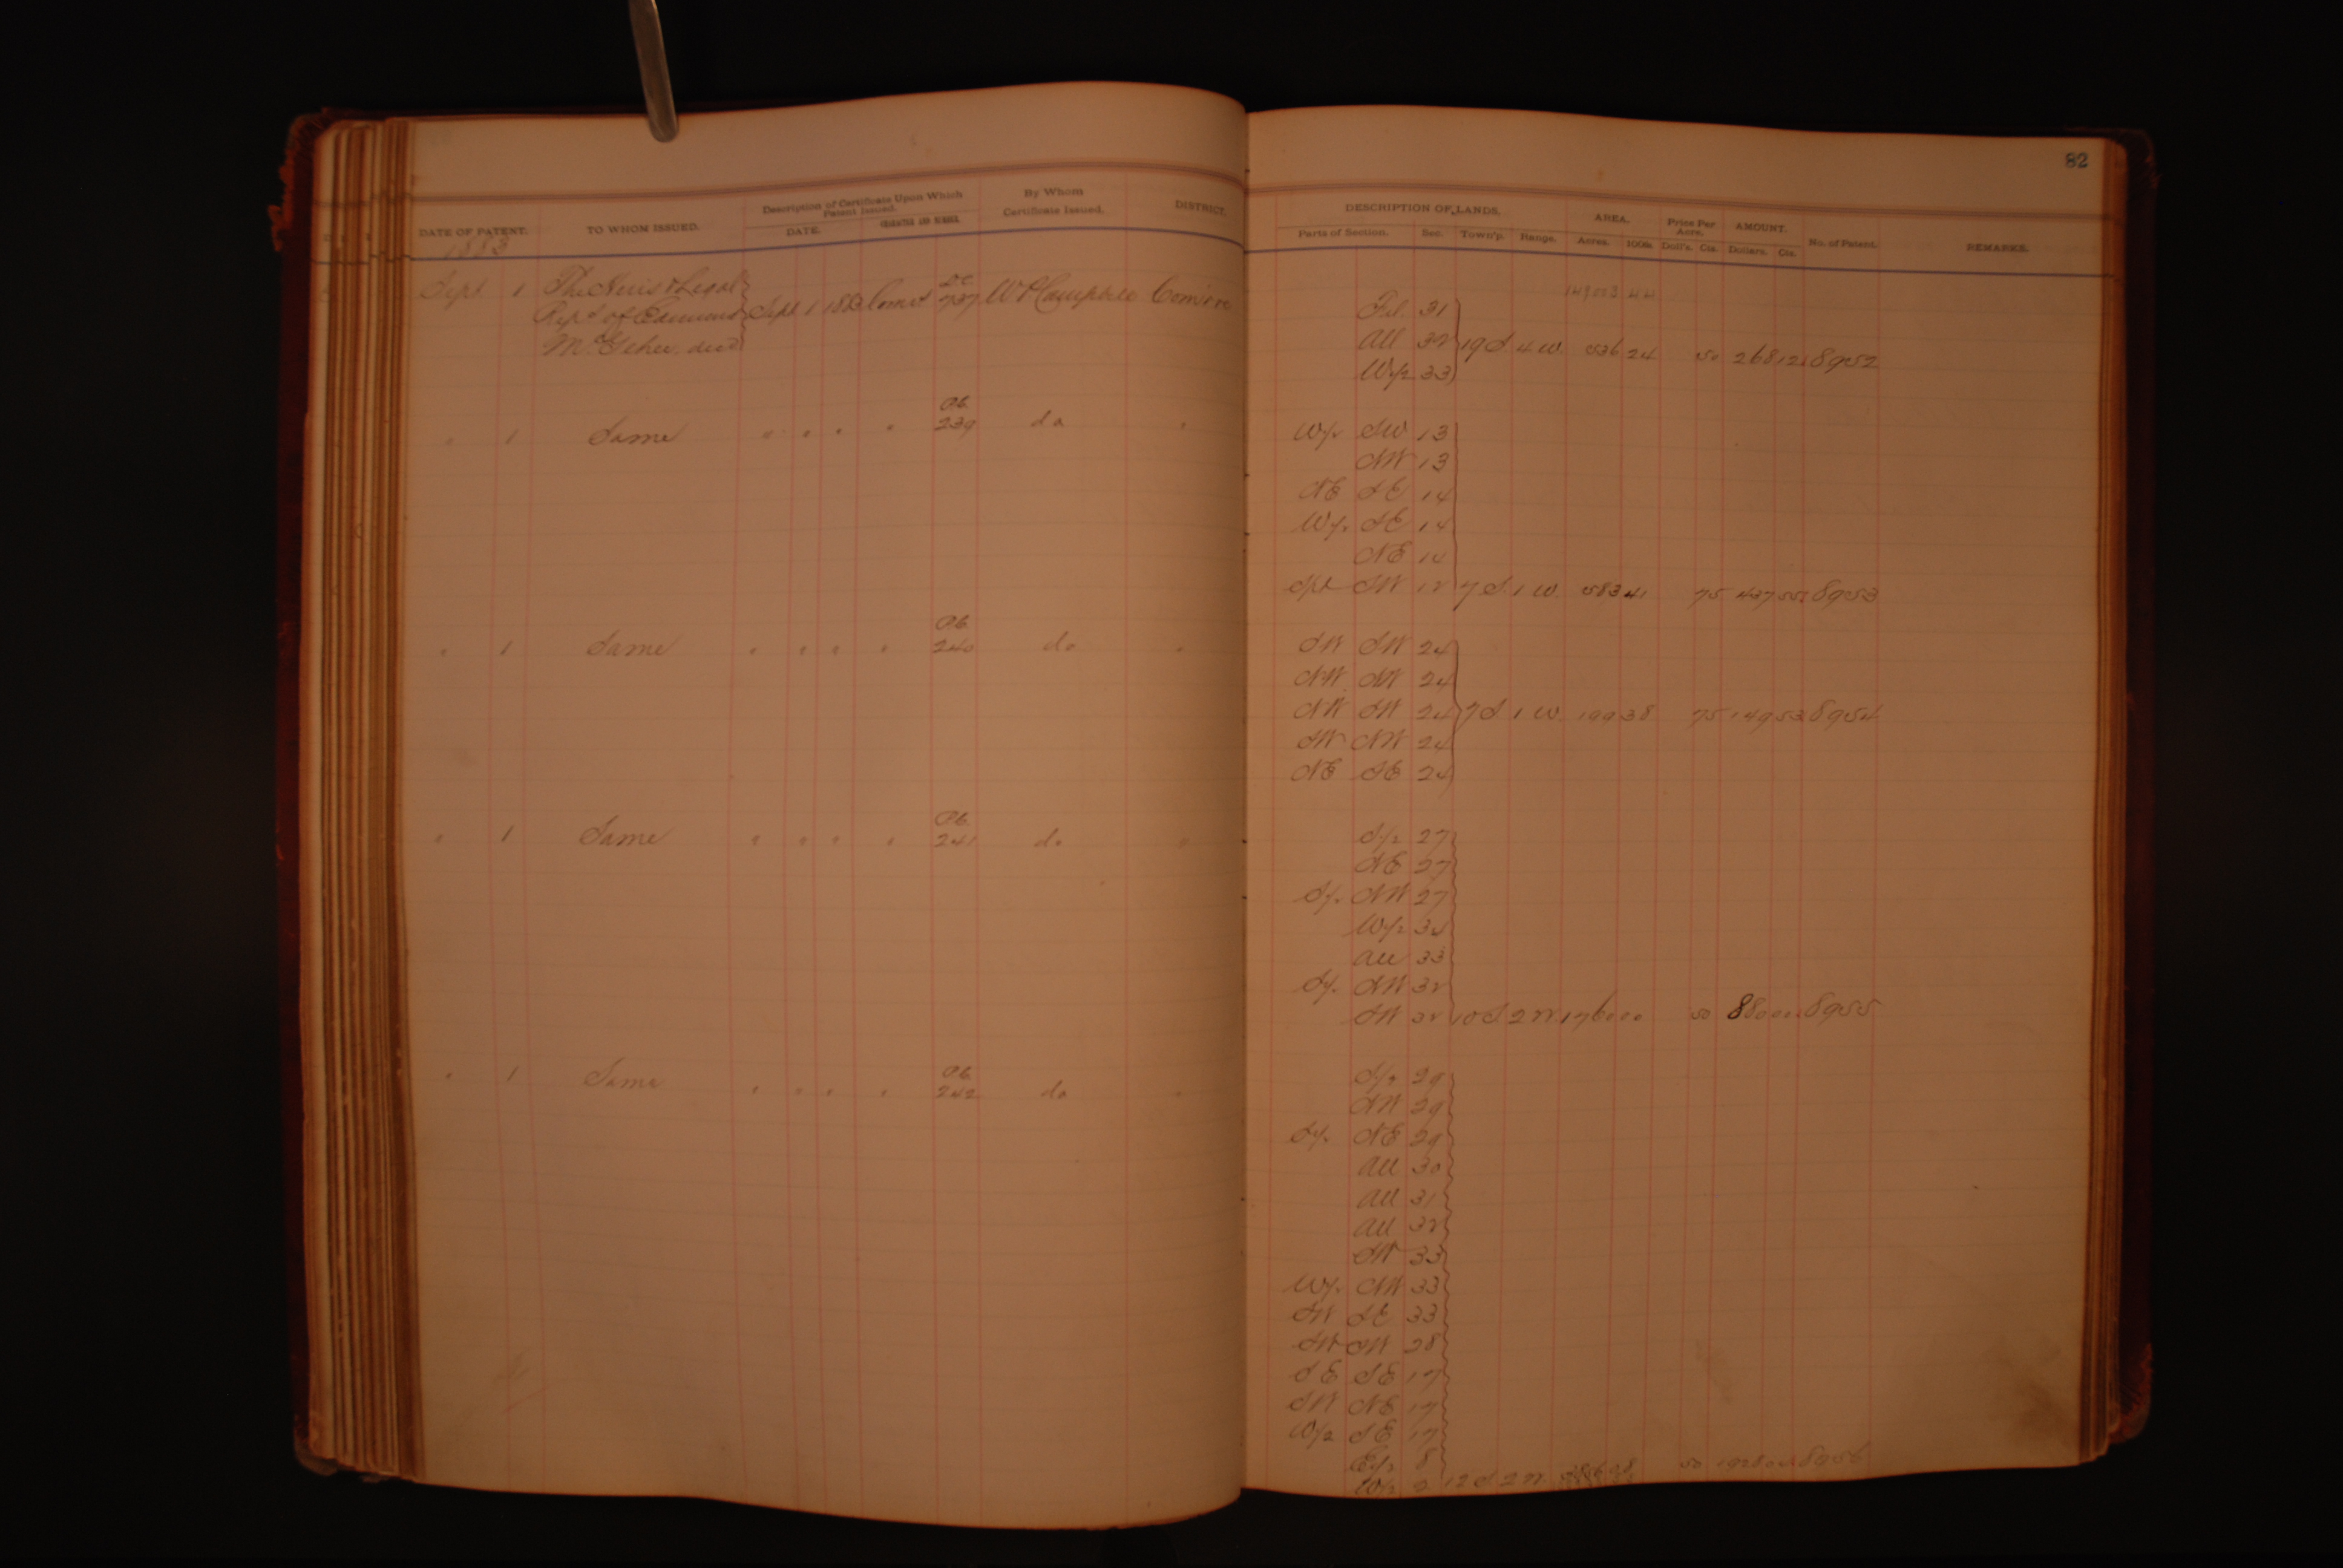 82
DATE OF PATENT. TO WHOM ISSUED. Description of Certificate Upon Which Patent Issued. DATE. CHARACTER AND NUMBER. By Whom Certificate Issued. DISTRICT.
DESCRIPTION OF LANDS. Parts of Section. Sec. Town'p. Range. AREA. Acres. 100ths. Price Per Acre. Doll's. Cts. AMOUNT. Dollars. Cts. No. of Patent. REMARKS.
1883
Sept 1 The Heirs & Legal Sept 1 1883 737 W P Campbell
Rep's of Edmund
McGehee dec'd
149013 44
Frl. 31
All 32 19 S 4 W. 536 24 50 268 12 8952
W/2 33
" 1 Same " " " " 239 do "
W/2 SW 13
NW 13
NE SE 14
W/2 SE 14
NE 14
Spt SW 12 7 S. 1 W. 583 41 75 437 55 8953
" 1 Same " " " " 240 do "
SW SW 24
NW NW 24
NW SW 24 7 S 1 W. 199 38 75 149 53 8954
SW NW 24
NE SE 24
" 1 Same " " " " 241 do "
S/2 27
NE 27
S/2 NW 27
W/2 34
All 33
S/2 NW 32
SW 32 10 S 2 W. 1760 00 50 880 00 8955
" 1 Same " " " " 242 do "
S/2 29
NW 29
S/2 NE 29
All 30
All 31
All 32
SW 33
W/2 NW 33
SW SE 33
SW SW 28
SE SE 17
SW NE 17
W/2 SE 17
E/2 8
W/2 12 S 2 W. 50 1928 8956